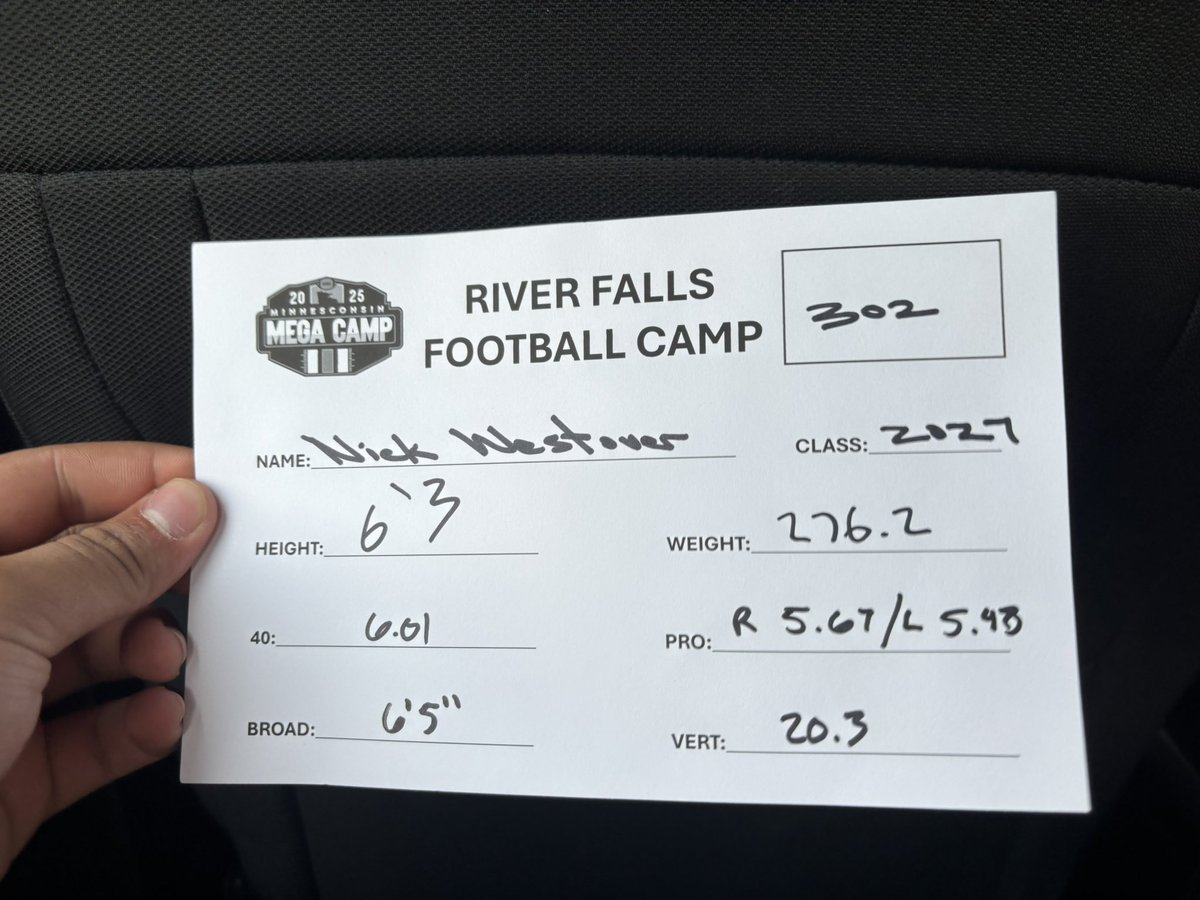 20 25
MINNESCONSIN
MEGA CAMP
RIVER FALLS
FOOTBALL CAMP
302
NAME: Nick Westover CLASS: 2027
HEIGHT: 6'3 WEIGHT: 276.2
40: 6.01 PRO: R 5.67/L 5.43
BROAD: 6'5" VERT: 20.3